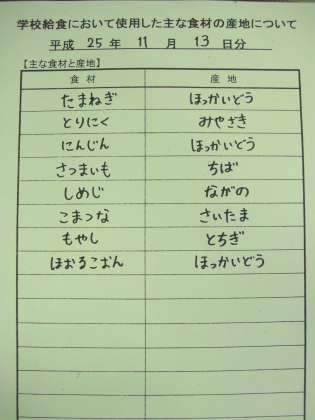 学校給食において使用した主な食材の産地について
平成 25 年 11 月 13 日分
【主な食材と産地】
食材 産地
たまねぎ ほっかいどう
とりにく みやざき
にんじん ほっかいどう
さつまいも ちば
しめじ ながの
こまつな さいたま
もやし とちぎ
ほおるこおん ほっかいどう